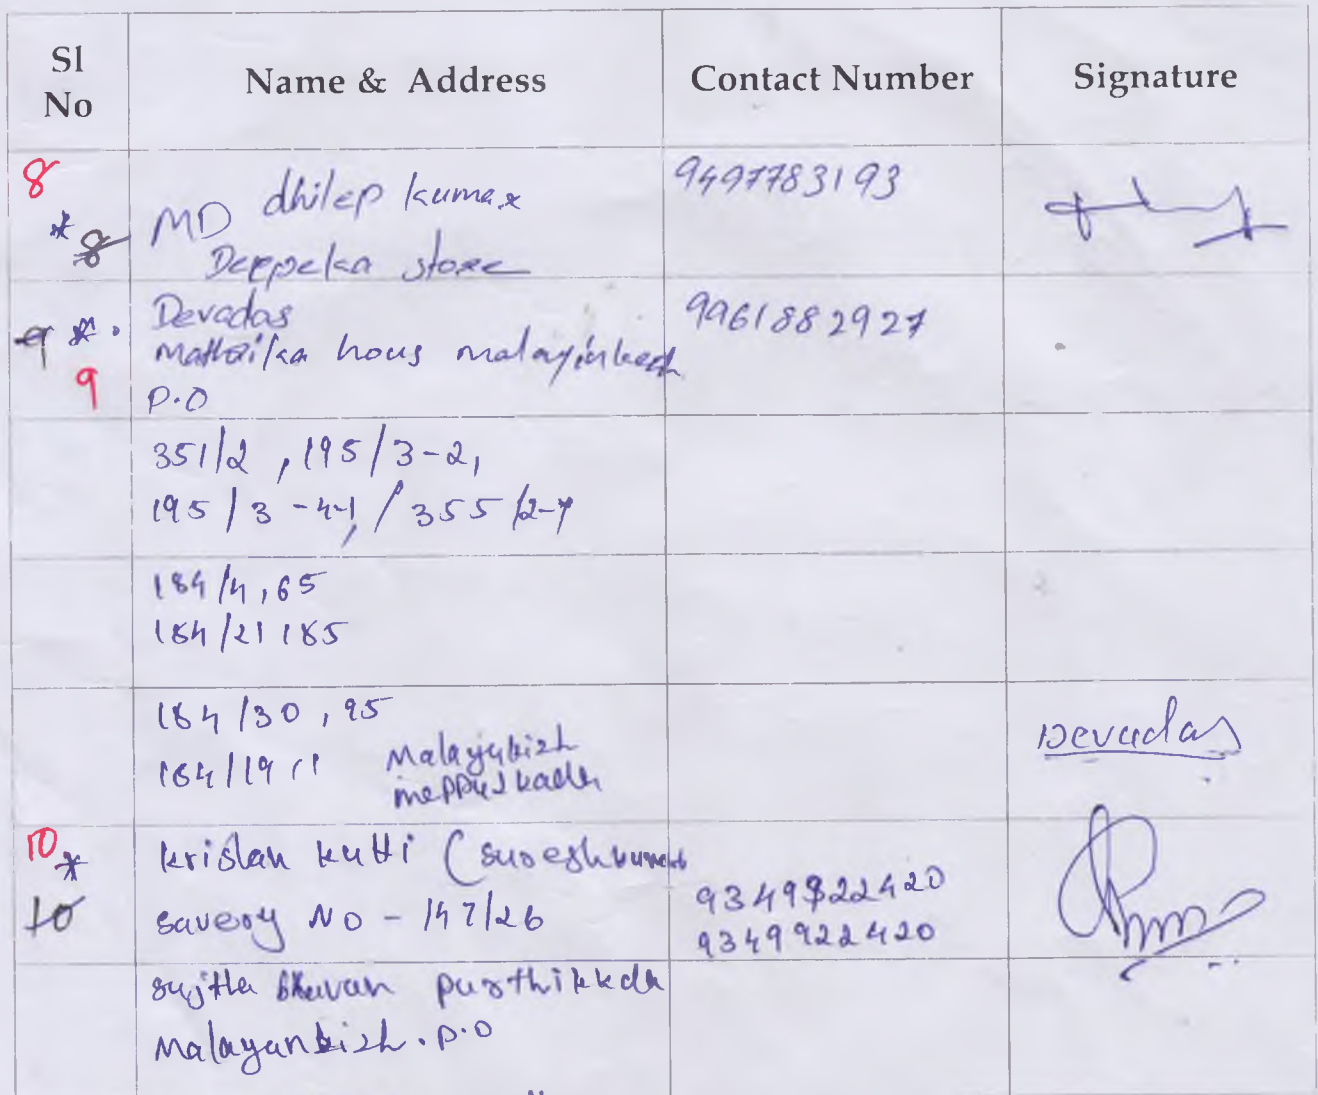 Sl No
Name & Address
Contact Number
Signature
8
* 8
MD dhilep kumar
Deppeka store
9497783193
9 *
9
Devadas
hous malayinkezh
P.O
9961882927
351/2 , 195/3-2,
195/3-4-1, / 355/2-7
184/4, 65
184/21 185
184/30 , 95
184/19 11
Malayukizh
meppukkada
Devadas
10 *
10
krislah kutti (sureshkumar
savery NO - 147/26
9349822420
9349922420
sujtha bhavan purthikkda
Malayankizh . P.O